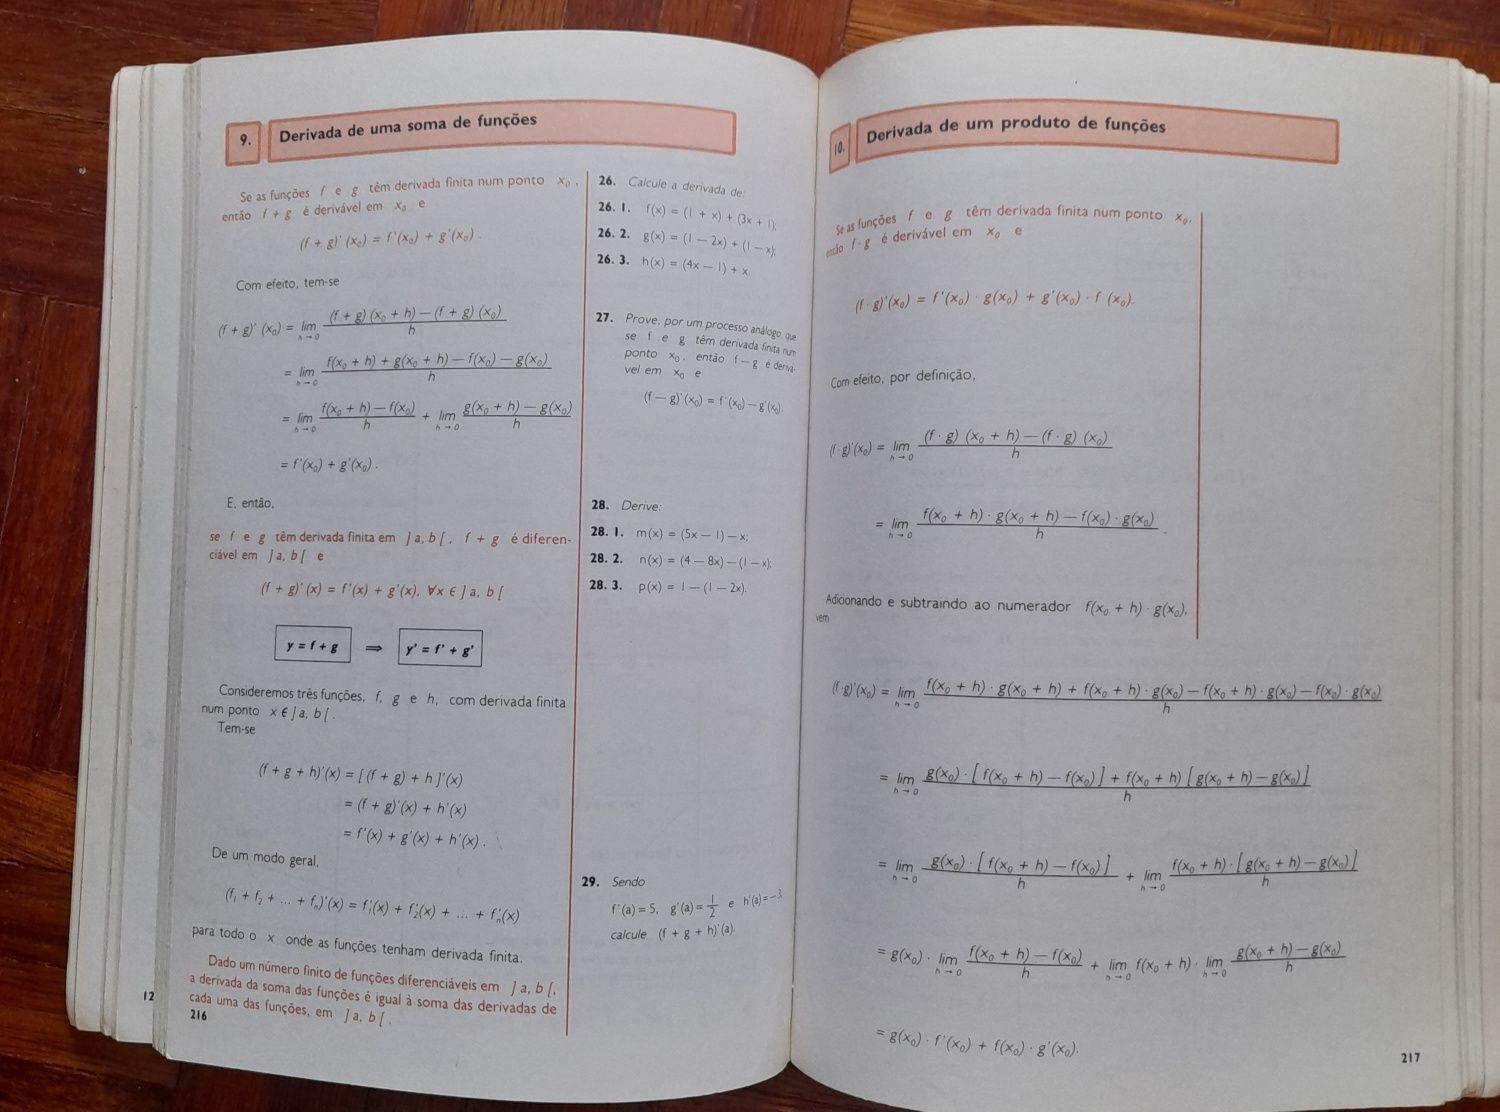 9. Derivada de uma soma de funções
Se as funções f e g têm derivada finita num ponto x₀,
então f + g é derivável em x₀ e
(f + g)' (x₀) = f'(x₀) + g'(x₀).
Com efeito, tem-se
(f + g)' (x₀) = lim h→0 (f + g) (x₀ + h) — (f + g) (x₀) / h
= lim h→0 f(x₀ + h) + g(x₀ + h) — f(x₀) — g(x₀) / h
= lim h→0 f(x₀ + h) — f(x₀) / h + lim h→0 g(x₀ + h) — g(x₀) / h
= f'(x₀) + g'(x₀).
E, então,
se f e g têm derivada finita em ]a, b[, f + g é diferen-
ciável em ]a, b[ e
(f + g)' (x) = f'(x) + g'(x), ∀x ∈ ]a, b[
y = f + g ⟹ y' = f' + g'
Consideremos três funções, f, g e h, com derivada finita
num ponto x ∈ ]a, b[.
Tem-se
(f + g + h)'(x) = [(f + g) + h]'(x)
= (f + g)'(x) + h'(x)
= f'(x) + g'(x) + h'(x).
De um modo geral,
(f₁ + f₂ + ... + fₙ)'(x) = f₁'(x) + f₂'(x) + ... + fₙ'(x)
para todo o x onde as funções tenham derivada finita.
Dado um número finito de funções diferenciáveis em ]a, b[,
a derivada da soma das funções é igual à soma das derivadas de
cada uma das funções, em ]a, b[.
216
12
26. Calcule a derivada de:
26. 1. f(x) = (1 + x) + (3x + 1);
26. 2. g(x) = (1 — 2x) + (1 — x);
26. 3. h(x) = (4x — 1) + x.
27. Prove, por um processo análogo, que
se f e g têm derivada finita num
ponto x₀, então f — g é derivá-
vel em x₀ e
(f — g)'(x₀) = f'(x₀) — g'(x₀).
28. Derive:
28. 1. m(x) = (5x — 1) — x;
28. 2. n(x) = (4 — 8x) — (1 — x);
28. 3. p(x) = 1 — (1 — 2x).
29. Sendo
f'(a) = 5, g'(a) = 1/2 e h'(a) = —3,
calcule (f + g + h)'(a).
10. Derivada de um produto de funções
Se as funções f e g têm derivada finita num ponto x₀,
então f · g é derivável em x₀ e
(f · g)'(x₀) = f'(x₀) · g(x₀) + g'(x₀) · f (x₀).
Com efeito, por definição,
(f · g)'(x₀) = lim h→0 (f · g) (x₀ + h) — (f · g) (x₀) / h
= lim h→0 f(x₀ + h) · g(x₀ + h) — f(x₀) · g(x₀) / h .
Adicionando e subtraindo ao numerador f(x₀ + h) · g(x₀),
vem
(f · g)'(x₀) = lim h→0 f(x₀ + h) · g(x₀ + h) + f(x₀ + h) · g(x₀) — f(x₀ + h) · g(x₀) — f(x₀) · g(x₀) / h
= lim h→0 g(x₀) · [f(x₀ + h) — f(x₀)] + f(x₀ + h) [g(x₀ + h) — g(x₀)] / h
= lim h→0 g(x₀) · [f(x₀ + h) — f(x₀)] / h + lim h→0 f(x₀ + h) · [g(x₀ + h) — g(x₀)] / h
= g(x₀) · lim h→0 f(x₀ + h) — f(x₀) / h + lim h→0 f(x₀ + h) · lim h→0 g(x₀ + h) — g(x₀) / h
= g(x₀) · f'(x₀) + f(x₀) · g'(x₀).
217